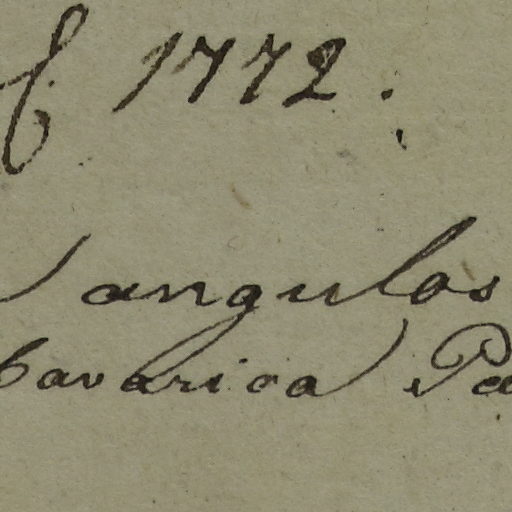 1772.
angulos
bavarica